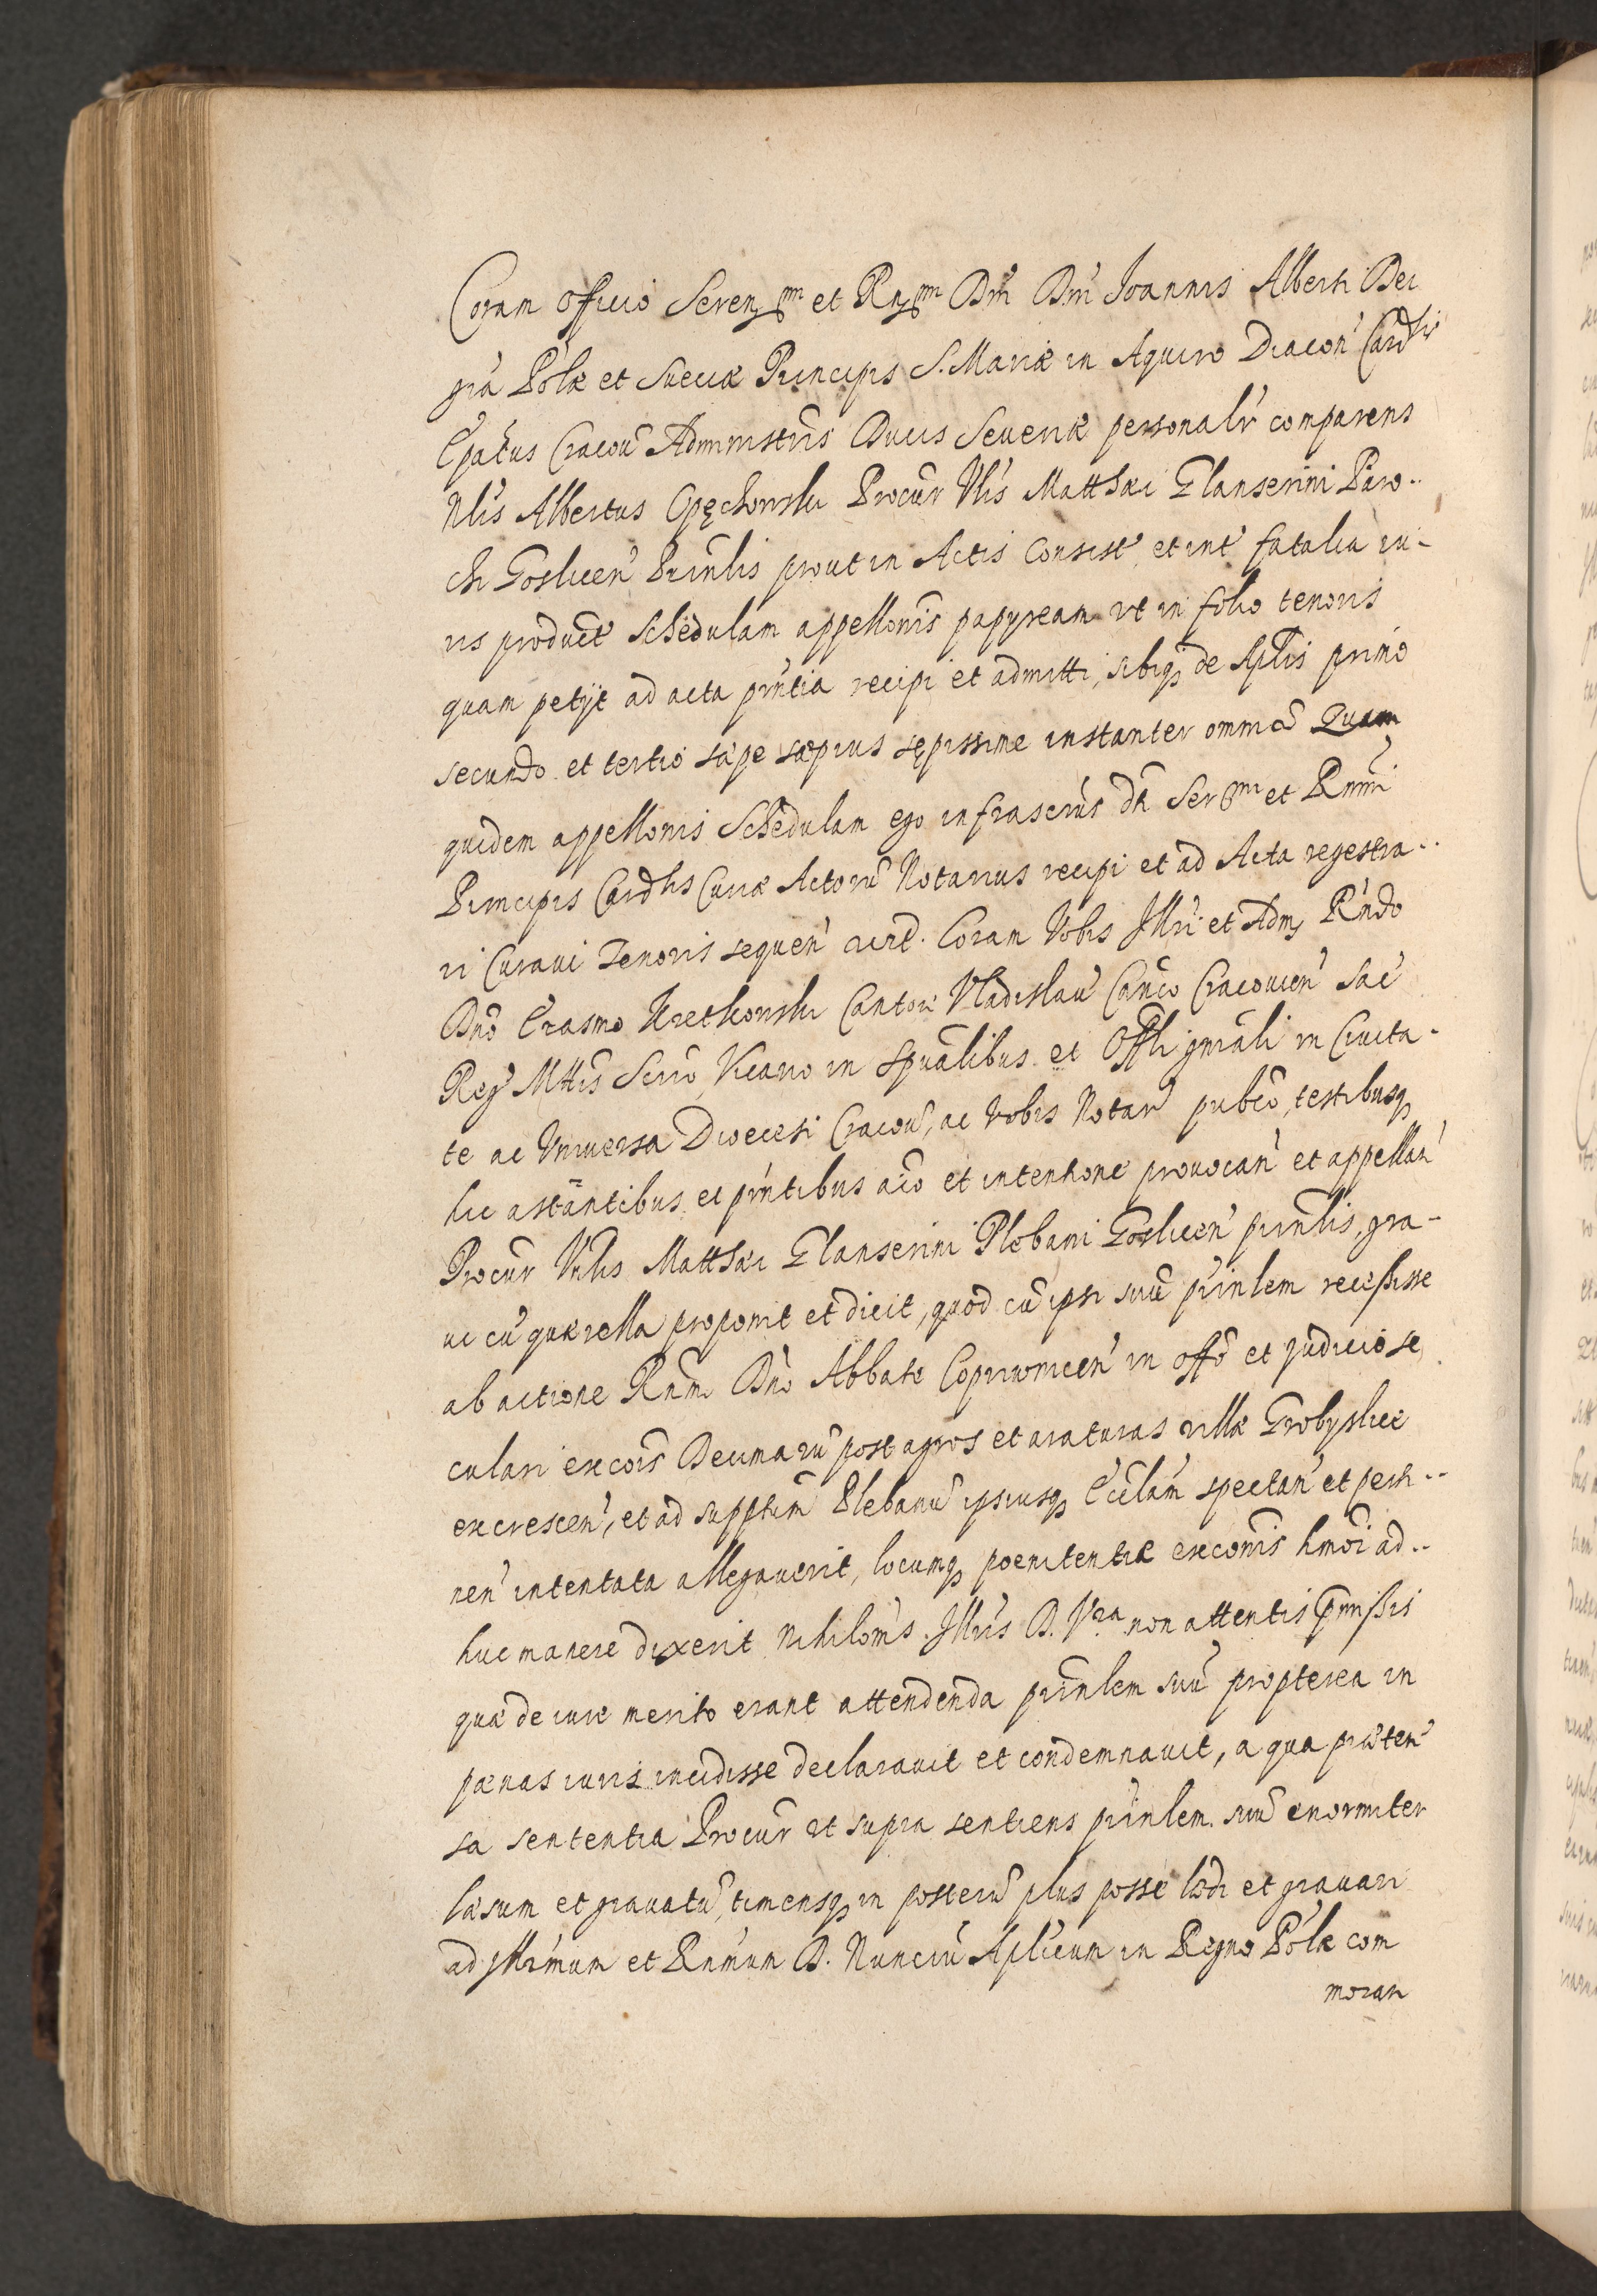 Coram officio Serenss̃mi et Rnss̃mi Dni Dni Joannis Alberti Dei
grã Polæ et Sueciæ Principis S. Mariæ in Aquiro Diacon̄ Cardlis
Epatus Cracou Administris Ducis Seueriæ personalr comparens
Nlis Albertus Opęchowski Procur Vlis Matthæi Glanserini Paro..
chi Goslicen Prinlis prout in Actis Consist. et int fatalia iu-
ris product Schedulam appellonis papyream ut in folio tenoris
quam petijt ad acta pñtia recipi et admitti, sibiq de Aplis primo
secundo et tertio sæpe sæpius sępissime instanter omni Quam
quidem appellonis Schedulam ego infrascrus dti Sermi et Rnmi
Principis Cardlis Curiæ Actoru Notarius recipi et ad Acta regestra..
ri Curaui Tenoris sequen Coram Vobis Illri et Adm Rndo
Dno Erasmo Kretkowski Cantori Vladislau Canco Cracouien Sac
Reg Mttis Secrio, Vicario in Spualibus et Offli gnrali in Ciuita-
te ac Vniuersa Dioecesi Cracou, ac Vobis Notar pubco, testibusq
hic astantibus et pñtibus aio et intentione prouocan et appellan
Procur Vnlis Matthæi Glanserini Plebani Goslicen prinlis, gra-
ui cu quærella proponit et dicit, quod cu ipse suu prinlem recessisse
ab actione Rnmo Dno Abbate Copriwnicen in offo et judicio se
culari ex cois Decimaru post agros et araturas villæ Grobyslice
excrescen, et ad supptum Plebanu ipsiusq Ecclam spectan et perti..
nen intentata allegauerit, locumq poenitentiæ exconis hmoi ad..
huc manere dixerit Nihilomis Illris D. Vra non attentis præmissis
quæ de iure merito erant attendenda prinlem suu propterea in
pænas iuris incidisse declarauit et condemnauit, a qua præten
sa sententia Procur ut supra sentiens prinlem suu enormiter
læsum et grauatu, timensq in posteru plus posse lædi et grauari
ad Illrimum et Rnmum D. Nunciu Aplicum in Regno Polæ com
moran